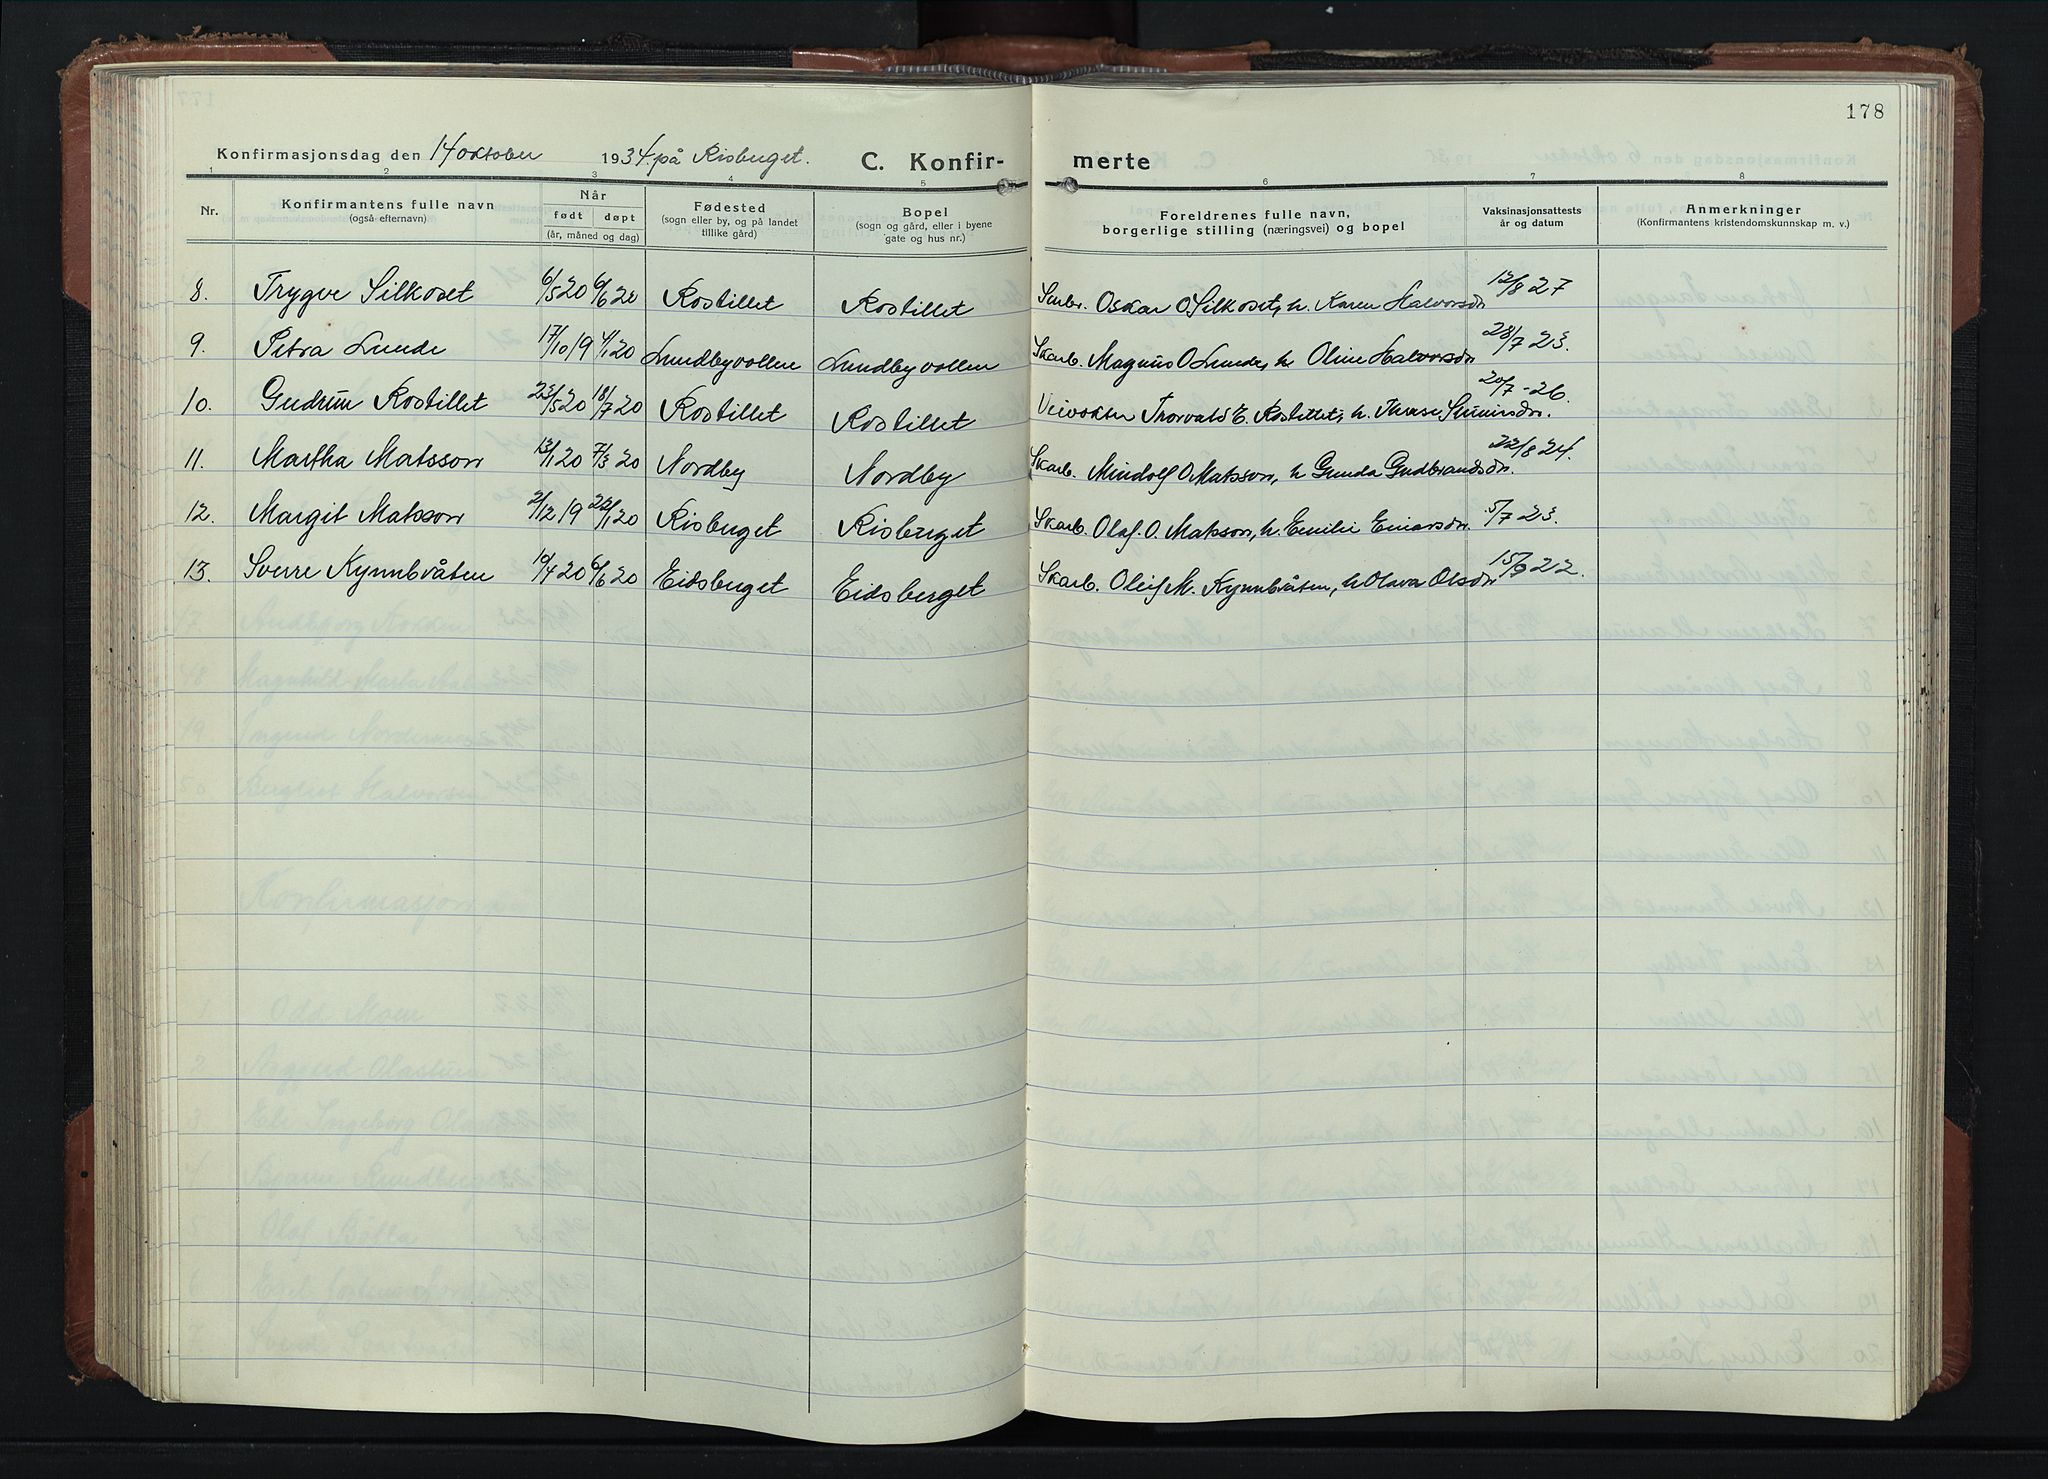 178
Konfirmasjonsdag den 14 oktober 1934 på Risberget. C. Konfir- merte
1 2 3 4 5 6 7 8
Nr. Konfirmantens fulle navn (også efternavn) Når født døpt (år, måned og dag) Fødested (sogn eller by, og på landet tillike gård) Bopel (sogn og gård, eller i byene gate og hus nr.) Foreldrenes fulle navn, borgerlige stilling (næringsvei) og bopel Vaksinasjonsattests år og datum Anmerkninger (Konfirmantens kristendomskunnskap m. v.)
8. Trygve Silkoset 6/5 20 6/6 20 Rostillet Rostillet Oskar O. Silkoset, h. Karen Halvorsdr. 12/8 27
9. Petra Lunde 17/10 19 4/1 20 Lundbyvollen Lundbyvollen Skarb. Magnus O Lunde, h. Oline Halvorsdr. 28/7 23.
10. Gudrun Rostillet 23/5 20 18/7 20 Rostillet Rostillet Veivokter Thorvald E. Rostillet, h. 20/7 - 26.
11. Martha Matsson 13/1 20 7/3 20 Nordby Nordby Skarb. Mindolf O Matsson, h Gunda Gudbrandsdr. 22/8 24.
12. Margit Matsson 2/12 19 22/1 20 Risberget Risberget Skarb. Olaf. O. Matsson, h. Emilie Einarsdr. 5/7 23.
13. Sverre Kynnbråten 10/4 20 6/6 20 Eidsberget Eidsberget Skarb. Oluf M. Kynnbråten, h Olava Olsdr 15/9 22.